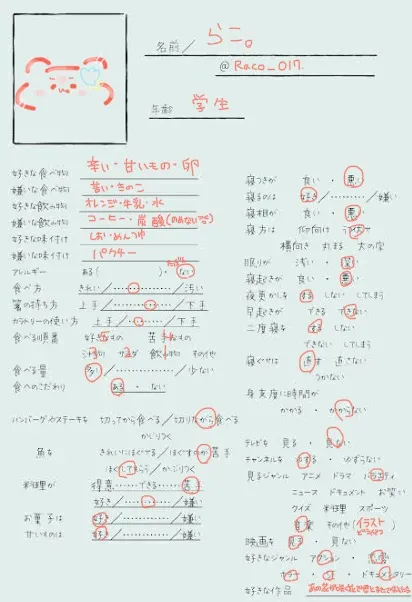 名前／ らこ。
@Raco_017
年齢 学生
好きな食べ物 辛い・甘いもの・卵
嫌いな食べ物 苦い・きのこ
好きな飲み物 オレンジ・牛乳・水
嫌いな飲み物 コーヒー・炭酸
好きな味付け しお・めんつゆ
嫌いな味付け パクチー
アレルギー ある( )・ない
食べ方 きれい／・・・・・・・・・／汚い
箸の持ち方 上手／・・・・・・・・・／下手
カラトリーの使い方 上手／・・・・・・・・・／下手
食べる順番 好きなもの 苦手なもの
サラダ 飲み物 その他
食べる量 多い／・・・・・・・・・／少ない
食へのこだわり ある・ない
ハンバーグやステーキを 切ってから食べる／切りながら食べる
かじりつく
魚を きれいにほぐせる／ほぐすのが苦手
ほぐしてもらう／かぶりつく
料理が 得意……できる……苦手
好き／・・・・・・・・・／嫌い
お菓子は 好き／・・・・・・・・・／嫌い
甘いものは 好き／・・・・・・・・・／嫌い
寝つきが 良い・悪い
寝るのは 好き／・・・・・・・・・／嫌い
寝相が 良い・悪い
寝方は 仰向け うつ伏せ
横向き 丸まる 大の字
眠りが 浅い・深い
寝起きが 良い・悪い
夜更かしを する しない してしまう
早起きが できる できない
二度寝を する しない
できない してしまう
寝ぐせは 直す 直さない
つかない
身支度に時間が
かかる・かからない
テレビを 見る・見ない
チャンネルを ゆずる・ゆずらない
見るジャンル アニメ ドラマ バラエティ
ニュース ドキュメント お笑い
クイズ 料理 スポーツ
音楽 その他(イラスト
映画を 見る・見ない
好きなジャンル アクション・恋愛
ホラー・SF・ドキュメンタリー
好きな作品 あの花が咲く丘で君とまた出会えたら